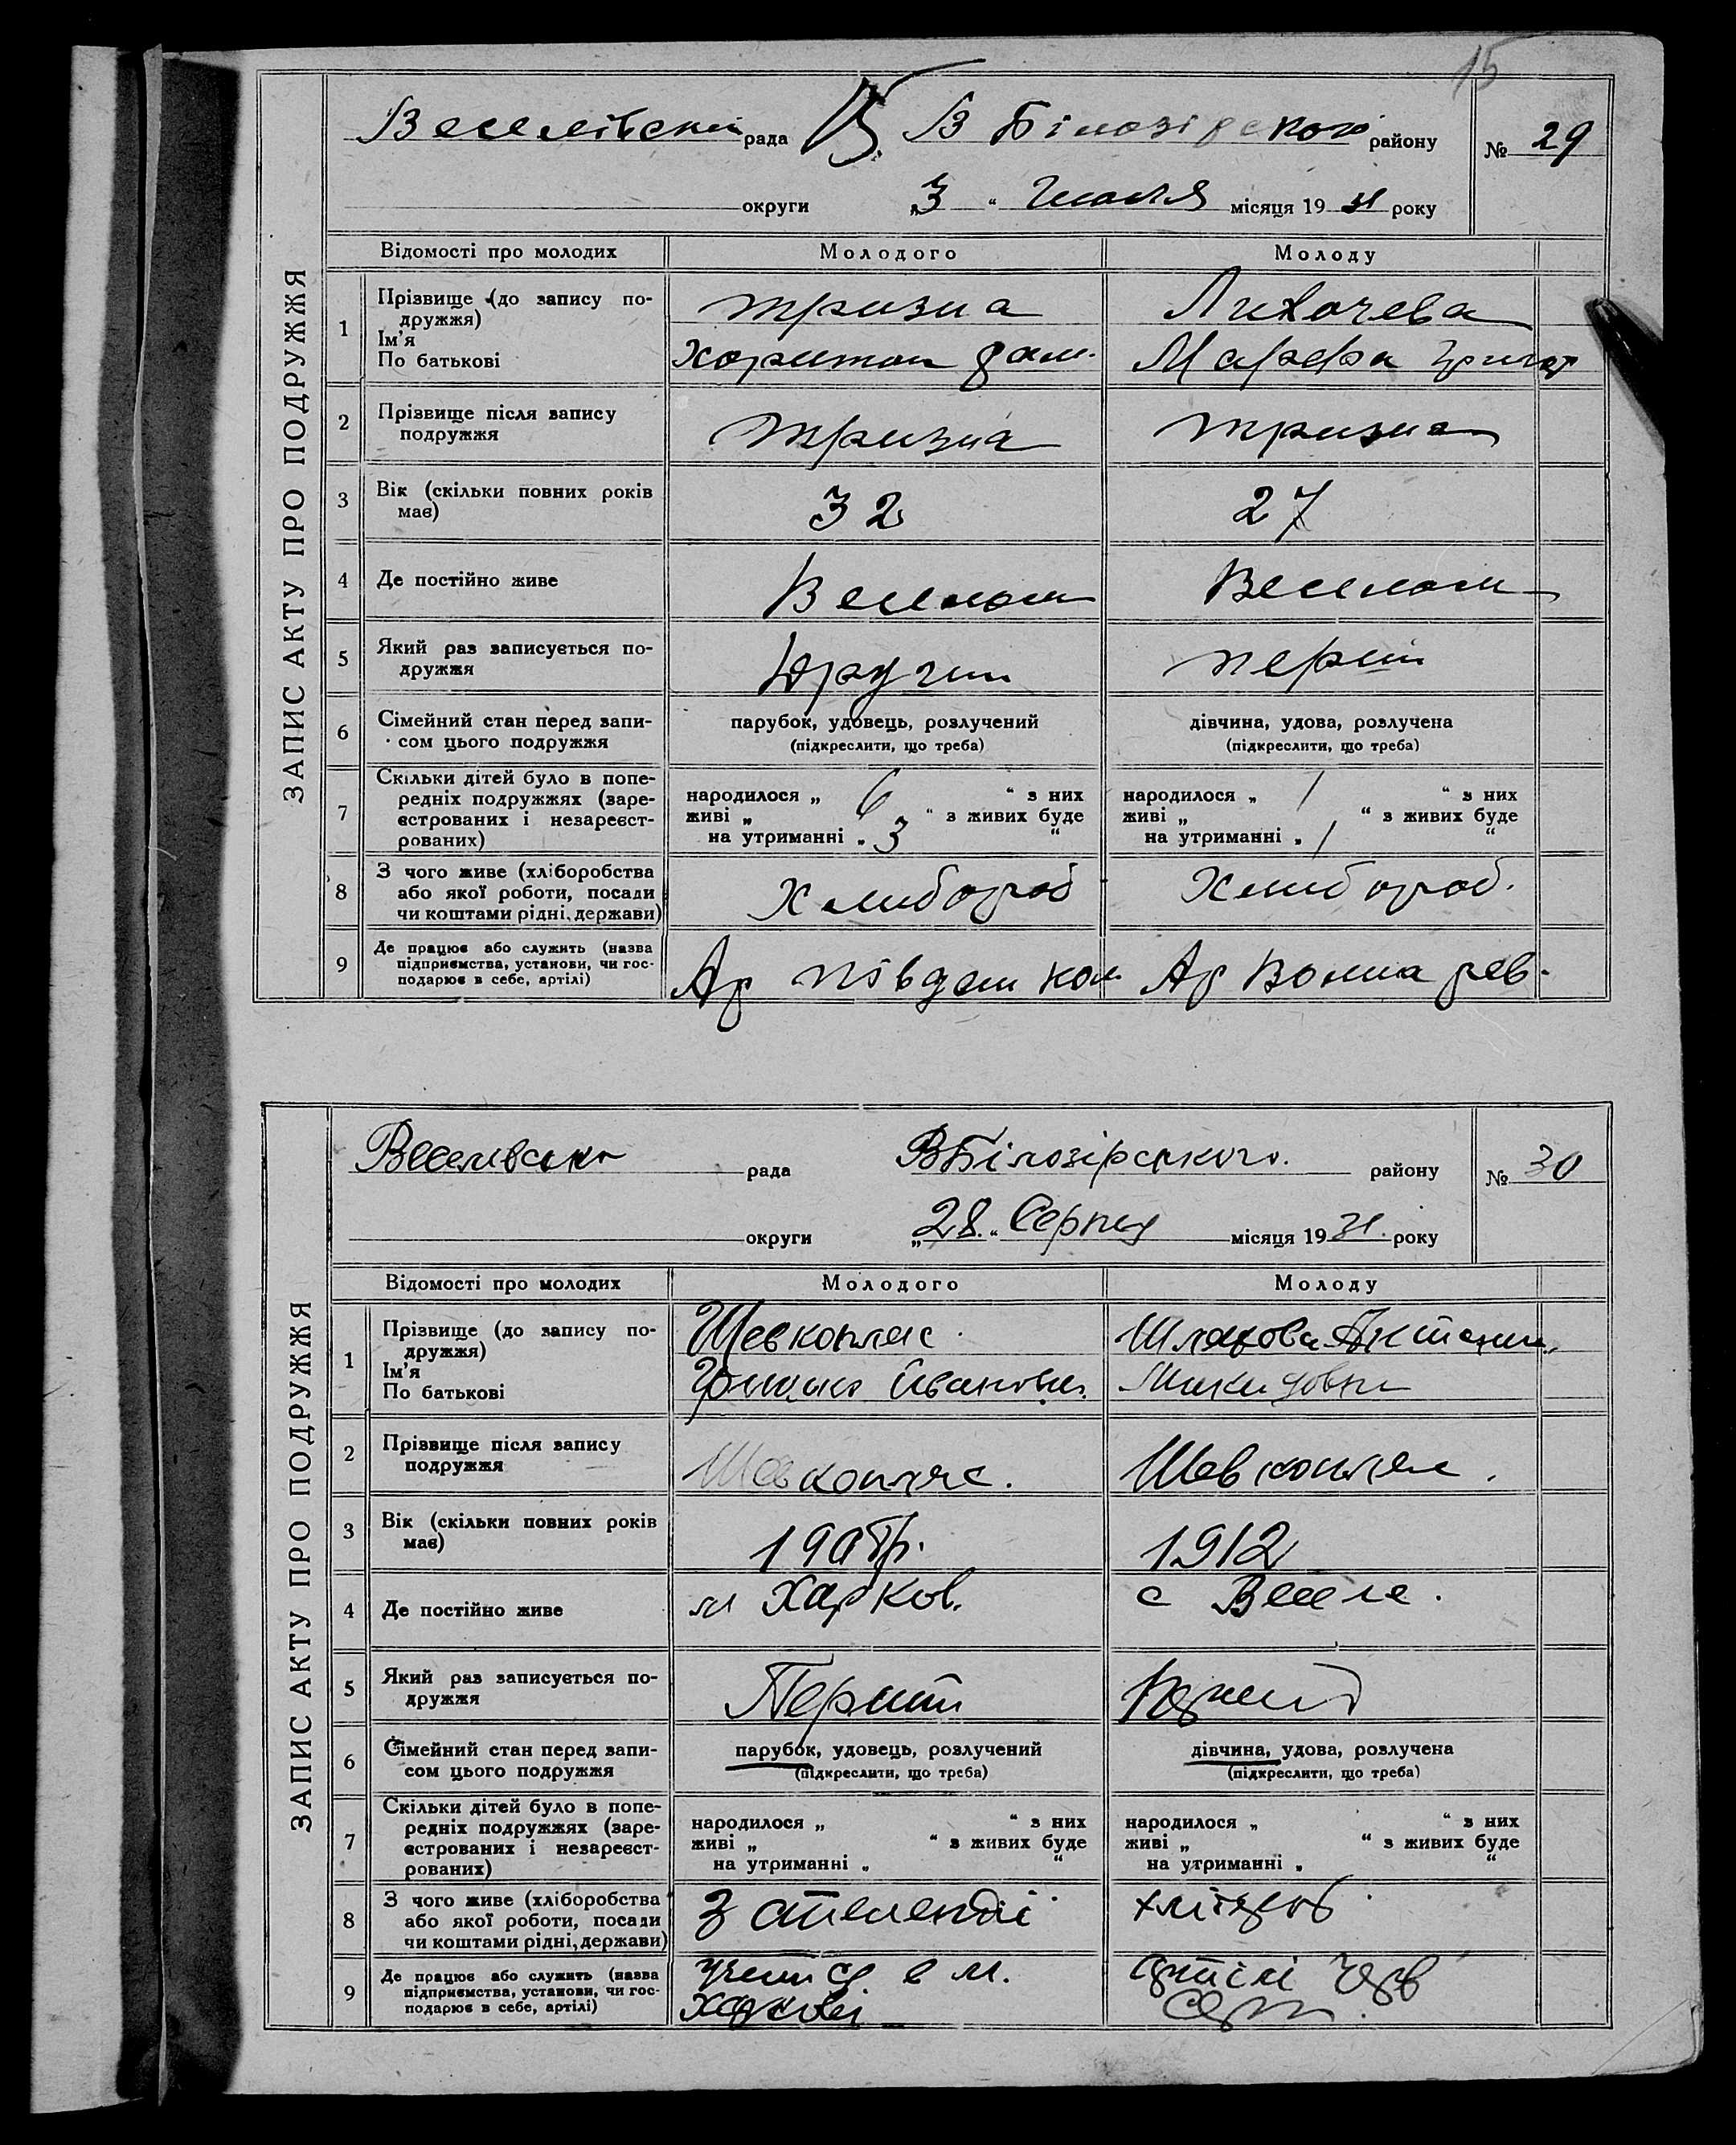 15
Веселівська рада 15. В Білозірского району № 29
округи „3“ Июля місяця 1931 року
ЗАПИС АКТУ ПРО ПОДРУЖЖЯ
Відомості про молодих Молодого Молоду
1 Прізвище (до запису по-
дружжя)
Ім'я
По батькові
Тризна Лихачева
Харитон Дам. Марфа Григор
2 Прізвище після запису
подружжя
Тризна Тризна
3 Вік (скільки повних років
має)
32 27
4 Де постійно живе Веселом Веселом
5 Який раз записується по-
дружжя
Другий перший
6 Сімейний стан перед запи-
сом цього подружжя
парубок, удовець, розлучений дівчина, удова, розлучена
(підкреслити, що треба) (підкреслити, що треба)
7 Скільки дітей було в попе-
редніх подружжях (заре-
єстрованих і незареєст-
рованих)
народилося „ 6 “ з них народилося „ 1 “ з них
живі „ “ з живих буде живі „ “ з живих буде
на утриманні „ 3 “ на утриманні „ 1 “
8 З чого живе (хліборобства
або якої роботи, посади
чи коштами рідні, держави)
Хлибороб Хлибороб.
9 Де працює або служить (назва
підприємства, установи, чи гос-
подарює в себе, артілі)
Ар Південь ком Ар Вольна рев.
Веселивська рада ВБілозірського. району № 30
округи „28.“ Серпня місяця 1931. року
ЗАПИС АКТУ ПРО ПОДРУЖЖЯ
Відомості про молодих Молодого Молоду
1 Прізвище (до запису по-
дружжя)
Ім'я
По батькові
Шевкопляс. Шляхова
Іванович. Микидовна
2 Прізвище після запису
подружжя
Шевкопляс. Шевкопляс.
3 Вік (скільки повних років
має)
1912
4 Де постійно живе м Харков. с Веселе.
5 Який раз записується по-
дружжя
Перший
6 Сімейний стан перед запи-
сом цього подружжя
парубок, удовець, розлучений дівчина, удова, розлучена
(підкреслити, що треба) (підкреслити, що треба)
7 Скільки дітей було в попе-
редніх подружжях (заре-
єстрованих і незареєст-
рованих)
народилося „ “ з них народилося „ “ з них
живі „ “ з живих буде живі „ “ з живих буде
на утриманні „ “ на утриманні „ “
8 З чого живе (хліборобства
або якої роботи, посади
чи коштами рідні, держави)
З стипендії хлібороб
9 Де працює або служить (назва
підприємства, установи, чи гос-
подарює в себе, артілі)
в м. артілі Черв
Харкові